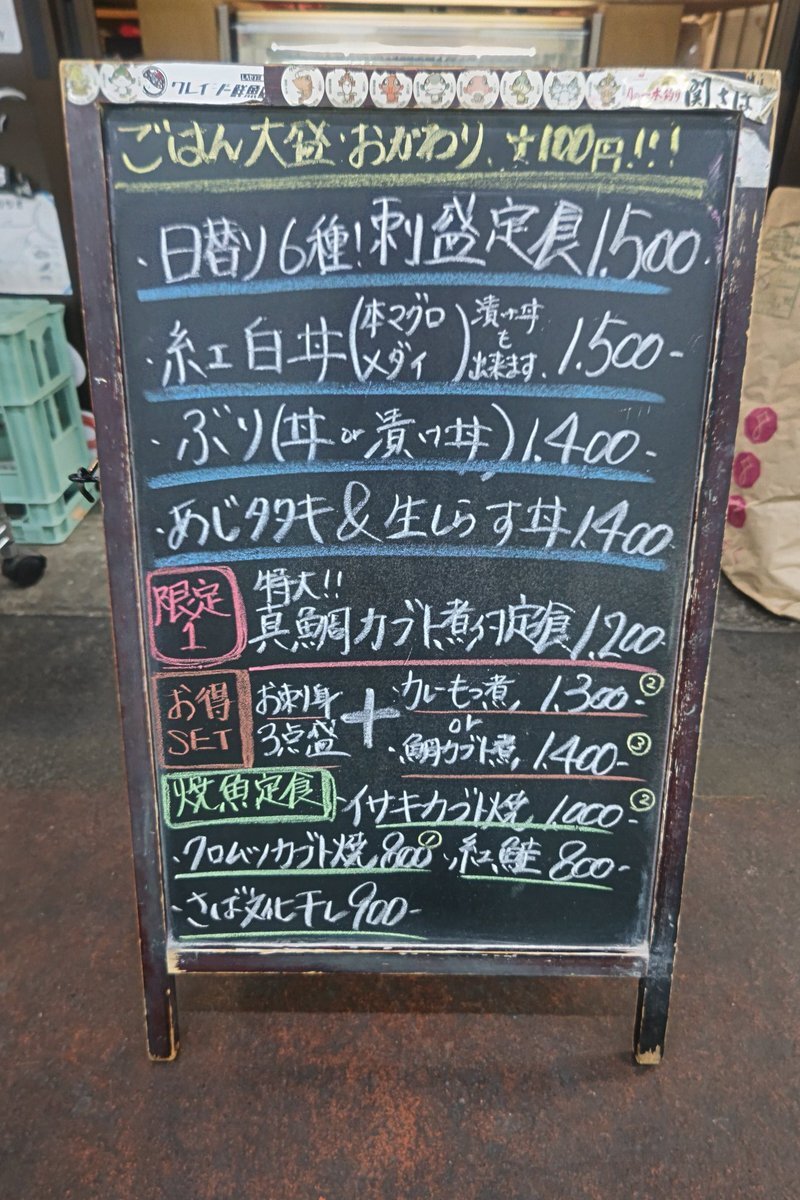 クレイジー鮮魚
一本釣り 関さば
ごはん大盛・おかわり、+100円!!!
・日替り6種!刺盛定食1.500
・紅白丼(本マグロ メダイ)漬け丼も出来ます。1.500-
・ぶり(丼or漬け丼)1.400-
・あじタタキ&生しらす丼1.400-
限定1 特大!!
真鯛カブト煮付定食1.200-
お得SET お刺身3点盛+カレーもつ煮、1.300-②
or
・鯛カブト煮、1.400-③
焼魚定食 ・イサキカブト焼 1.000-②
・クロムツカブト焼 800①・紅鮭 800-
・さば文化干し900-